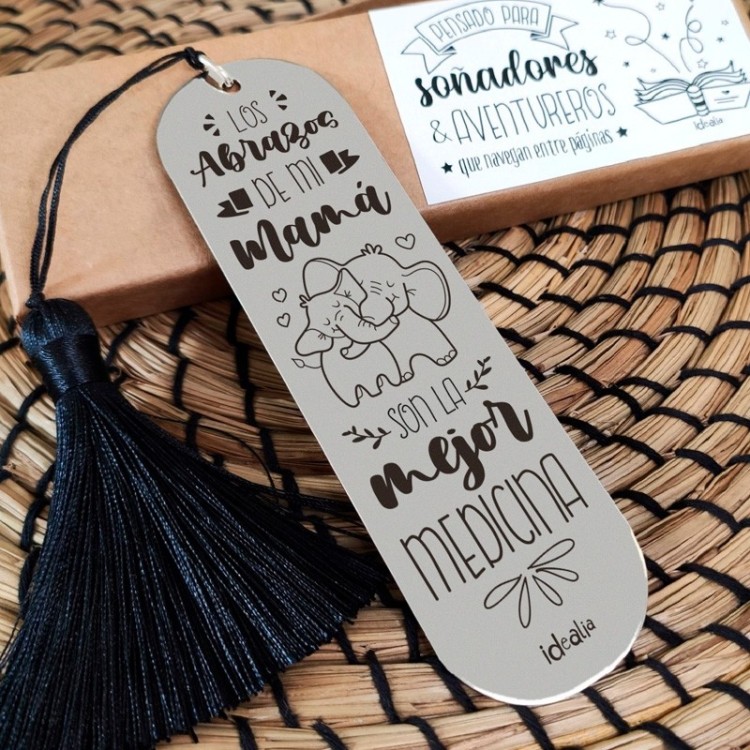 PENSADO PARA
soñadores
& AVENTUREROS
que navegan entre páginas
idealia
LOS
Abrazos
DE MI
mamá
SON LA
mejor
MEDICINA
idealia